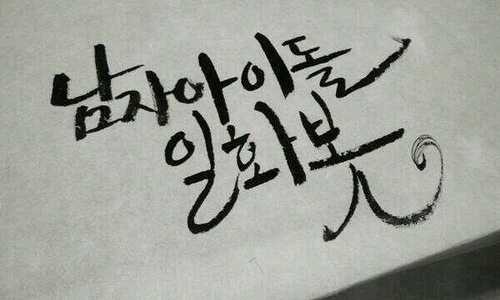 남자아이돌
일화봇